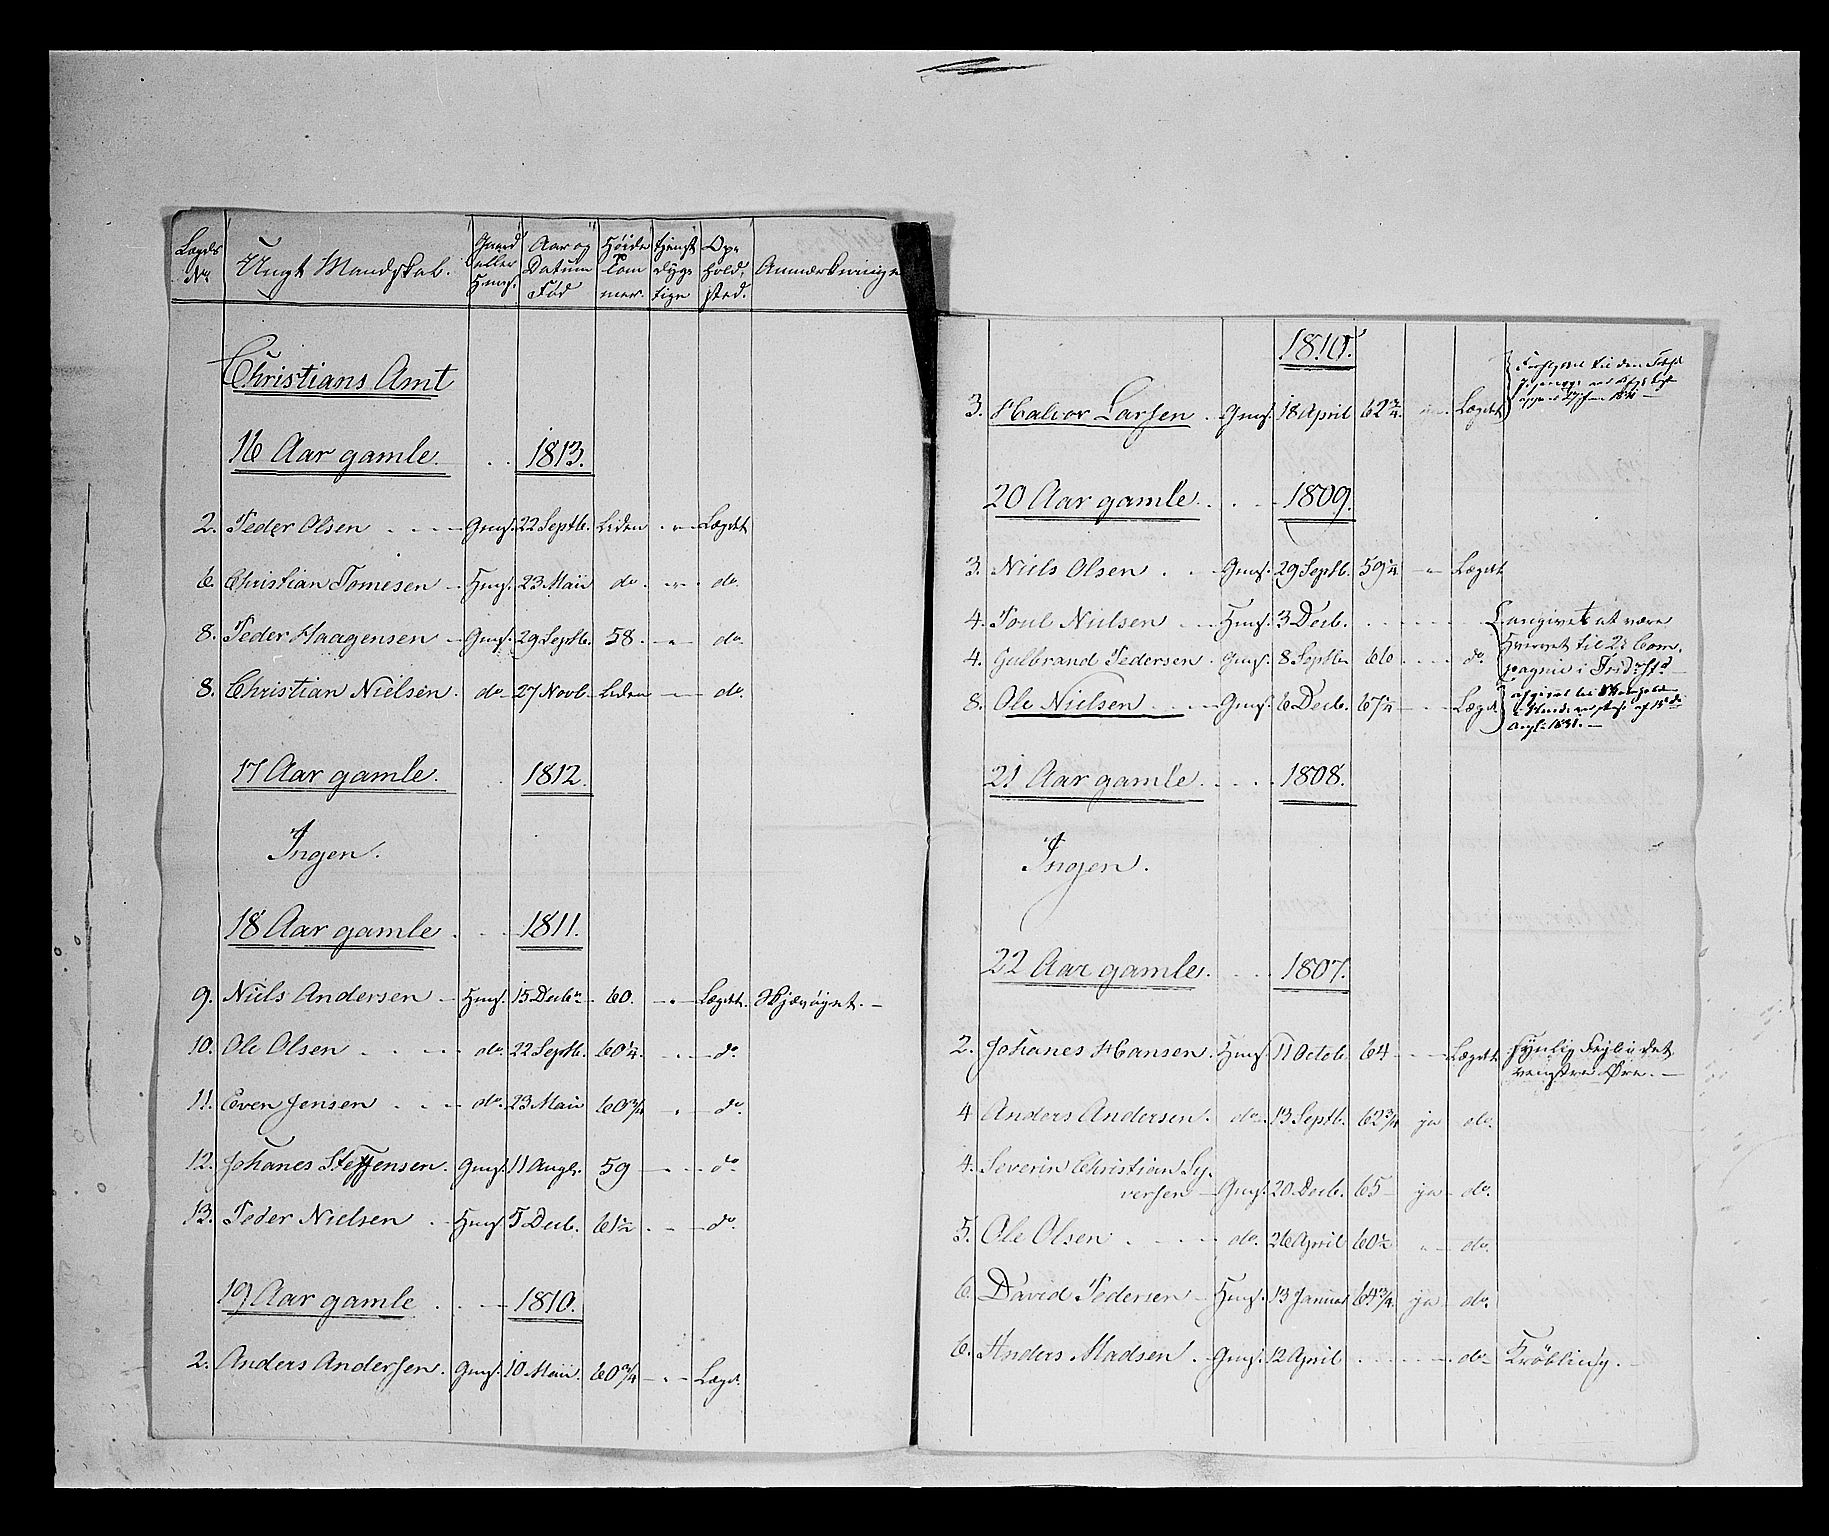 Lægds No | Ungt Mandskab. | Gaard eller Huus. | Aar og Datum Fød | Høide Tommer. | tjenstdygtige | Ophold, sted. | Anmærkninger
Christians Amt
16 Aar gamle. . . 1813.
2. Peder Olsen . . . Gmsf. 22 Septb. Liden . " . Lægdet
6. Christian Tomesen Husf. 23 Maii do. . " . do.
8. Peder Haagensen Gmsf. 29 Septb. 58. " do.
8. Christian Nielsen. do. 27 Novb. Liden do.
17 Aar gamle. . 1812.
Ingen.
18 Aar gamle . . . 1811.
9. Niels Andersen Husf. 15 Decbr. 60. " Lægdet. Skjævøyet.
10. Ole Olsen . . . do. 22 Septb. 60¼. do.
11. Even Jensen . . . do. 23 Maii 60¾ do.
12. Johanes Steffensen. Gmsf. 11 Augs. 59 do.
13. Peder Nielsen . Husf. 5 Decb. 61½ do.
19 Aar gamle . . . 1810.
2. Anders Andersen. Gmsf. 10 Maii. 60¾ " Lægd.
1810.
3. Halvor Larsen . Gmsf. 18 April 62¾ " Lægdet
20 Aar gamle . . . 1809.
3. Niels Olsen . . Gmsf. 29 Septb. 59¼ " Lægdet
4. Poul Nielsen . . Husf. 3 Decb. . . . angivet at være
Hvervet til 2de Com,
pagnie i Fridrst.
4. Gulbrand Pedersen . Gmsf. 8 Septb. 66 . . . do.
8. Ole Nielsen . . Gmsf. 6 Decb. 67¼ Lægd.
1831.
21 Aar gamle . . . 1808.
Ingen.
22 Aar gamle. . . 1807.
2. Johanes Hansen. Husf. 11 Octob. 64 Lægdet synlig Feil i det
venstre Øre.
4 Anders Andersen. do. 13 Septb. 62¾ ja do.
4. Severin Christian Sy,
versen Gmsf. 20 Decb. 65 ja do.
5. Ole Olsen . . . do. 26 April 60½ " do.
6. David Pedersen Husf. 13 Januar 64¾ ja do.
6. Anders Madsen . Gmsf. 12 April . . . . do. Krøbling.